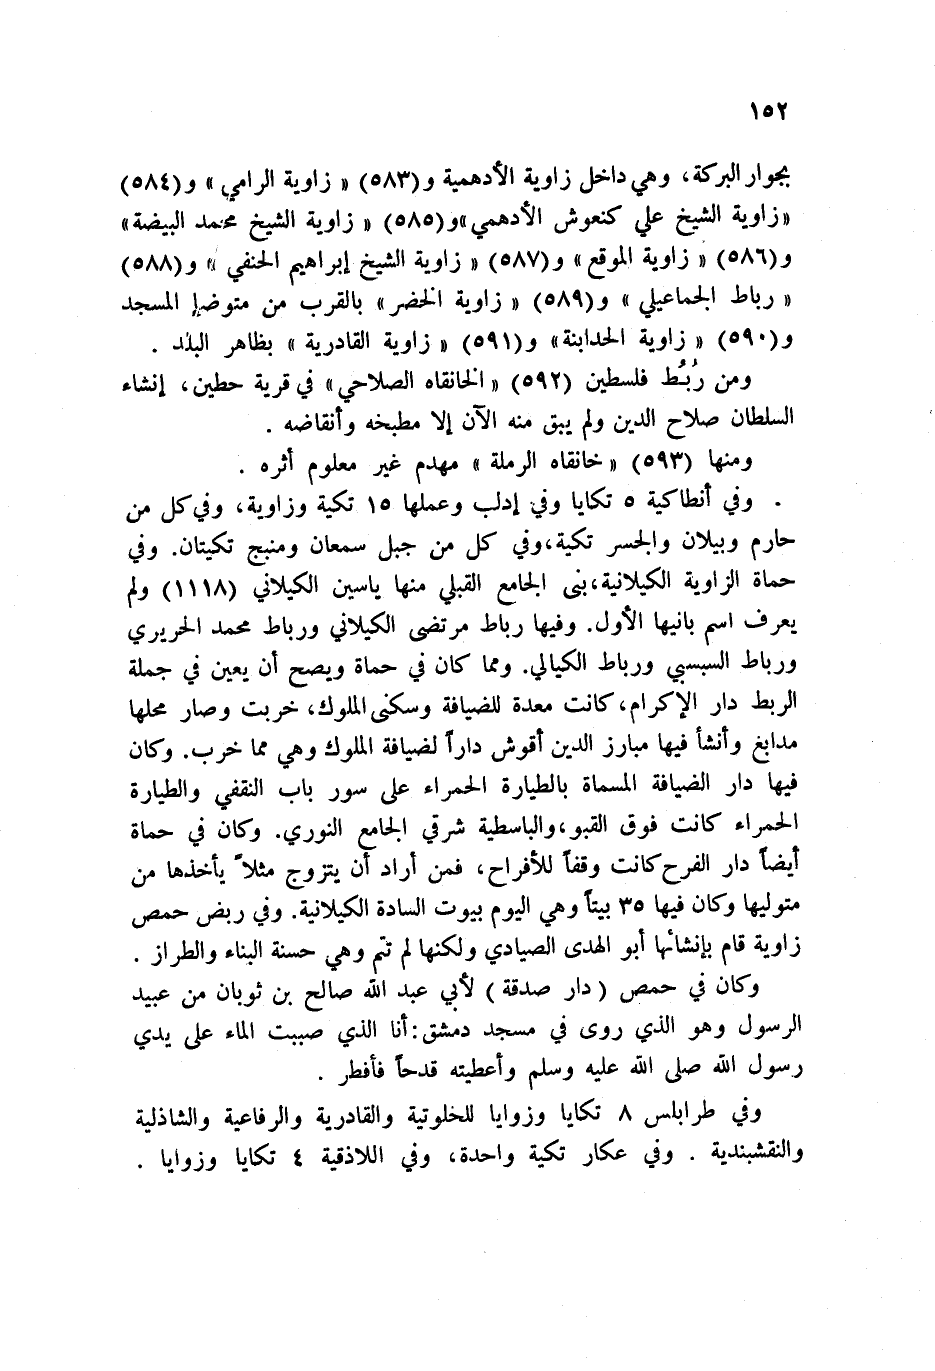 ١٥٢
بجوار البركة، وهي داخل زاوية الأدهمية و(٥٨٣) « زاوية الرامي » و(٥٨٤)
«زاوية الشيخ علي كنعوش الأدهمي»و(٥٨٥) « زاوية الشيخ محمد البيضة»
و(٥٨٦) « زاوية الموقع» و(٥٨٧) « زاوية الشيخ إبراهيم الحنفي » و(٥٨٨)
« رباط الجماعيلي » و(٥٨٩) « زاوية الخضر» بالقرب من متوضإ المسجد
و(٥٩٠) « زاوية الحدابنة» و(٥٩١) « زاوية القادرية » بظاهر البلد .
ومن رُبُط فلسطين (٥٩٢) «الخانقاه الصلاحي» في قرية حطين، إنشاء
السلطان صلاح الدين ولم يبق منه الآن إلا مطبخه وأنقاضه .
ومنها (٥٩٣) «خانقاه الرملة » مهدم غير معلوم أثره .
. وفي أنطاكية ٥ تكايا وفي إدلب وعملها ١٥ تكية وزاوية، وفي كل من
حارم وبيلان والجسر تكية،وفي كل من جبل سمعان ومنبج تكيتان. وفي
حماة الزاوية الكيلانية،بنى الجامع القبلي منها ياسين الكيلاني (١١١٨) ولم
يعرف اسم بانيها الأول. وفيها رباط مرتضى الكيلاني ورباط محمد الحريري
ورباط السبسبي ورباط الكيالي. ومما كان في حماة ويصح أن يعين في جملة
الربط دار الإكرام،كانت معدة للضيافة وسكنى الملوك، خربت وصار محلها
مدابغ وأنشأ فيها مبارز الدين أقوش داراً لضيافة الملوك وهي مما خرب. وكان
فيها دار الضيافة المسماة بالطيارة الحمراء على سور باب النقفي والطيارة
الحمراء كانت فوق القبو،والباسطية شرقي الجامع النوري. وكان في حماة
أيضاً دار الفرح كانت وقفاً للأفراح، فمن أراد أن يتزوج مثلاً يأخذها من
متوليها وكان فيها ٣٥ بيتاً وهي اليوم بيوت السادة الكيلانية. وفي ربض حمص
زاوية قام بإنشائها أبو الهدى الصيادي ولكنها لم تتم وهي حسنة البناء والطراز .
وكان في حمص ( دار صدقة ) لأبي عبد الله صالح بن ثوبان من عبيد
الرسول وهو الذي روى في مسجد دمشق:أنا الذي صببت الماء على يدي
رسول الله صلى الله عليه وسلم وأعطيته قدحاً فأفطر .
وفي طرابلس ٨ تكايا وزوايا للخلوتية والقادرية والرفاعية والشاذلية
والنقشبندية . وفي عكار تكية واحدة، وفي اللاذقية ٤ تكايا وزوايا .